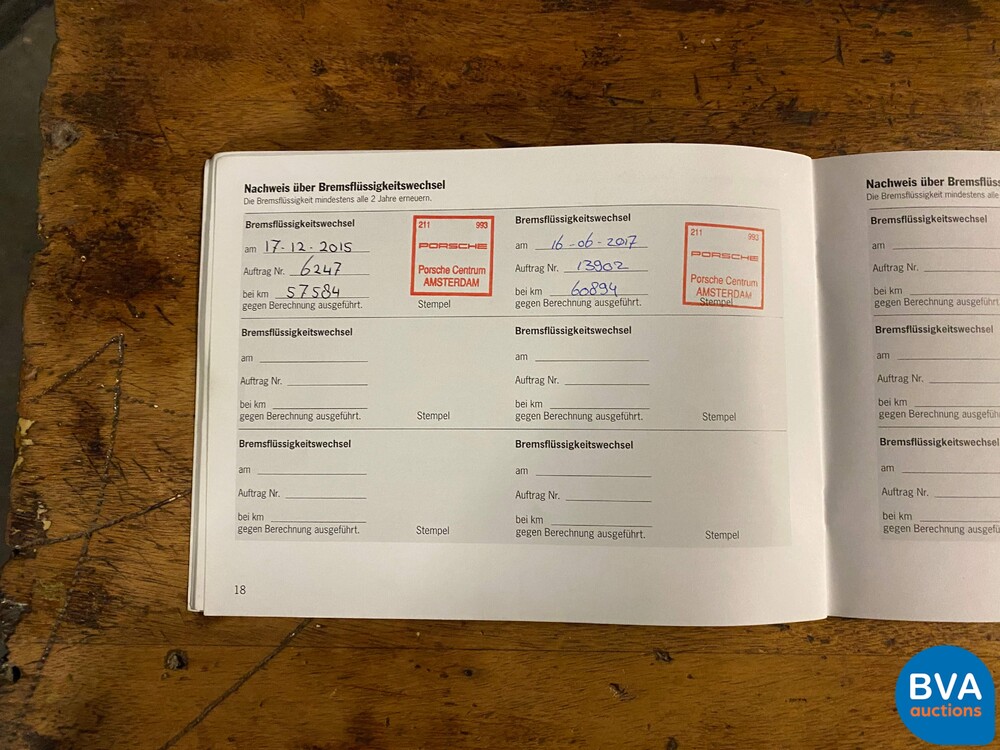 Nachweis über Bremsflüssigkeitswechsel
Die Bremsflüssigkeit mindestens alle 2 Jahre erneuern.
Bremsflüssigkeitswechsel
am 17-12-2015
Auftrag Nr. 6247
bei km 57584
gegen Berechnung ausgeführt.
Stempel
211 993
PORSCHE
Porsche Centrum
AMSTERDAM
Bremsflüssigkeitswechsel
am 16-06-2017
Auftrag Nr. 13902
bei km 60894
gegen Berechnung ausgeführt.
Stempel
211 993
PORSCHE
Porsche Centrum
AMSTERDAM
Bremsflüssigkeitswechsel
am
Auftrag Nr.
bei km
gegen Berechnung ausgeführt.
Stempel
Bremsflüssigkeitswechsel
am
Auftrag Nr.
bei km
gegen Berechnung ausgeführt.
Stempel
Bremsflüssigkeitswechsel
am
Auftrag Nr.
bei km
gegen Berechnung ausgeführt.
Stempel
Bremsflüssigkeitswechsel
am
Auftrag Nr.
bei km
gegen Berechnung ausgeführt.
Stempel
18
Nachweis über Bremsflüss
Die Bremsflüssigkeit mindestens alle
Bremsflüssigkeitswechsel
am
Auftrag Nr.
bei km
gegen Berechnung ausgeführt.
Bremsflüssigkeitswechsel
am
Auftrag Nr.
bei km
gegen Berechnung ausgefüh
Bremsflüssigkeitswechsel
am
Auftrag Nr.
bei km
gegen Berechnung ausgefü
BVA
auctions